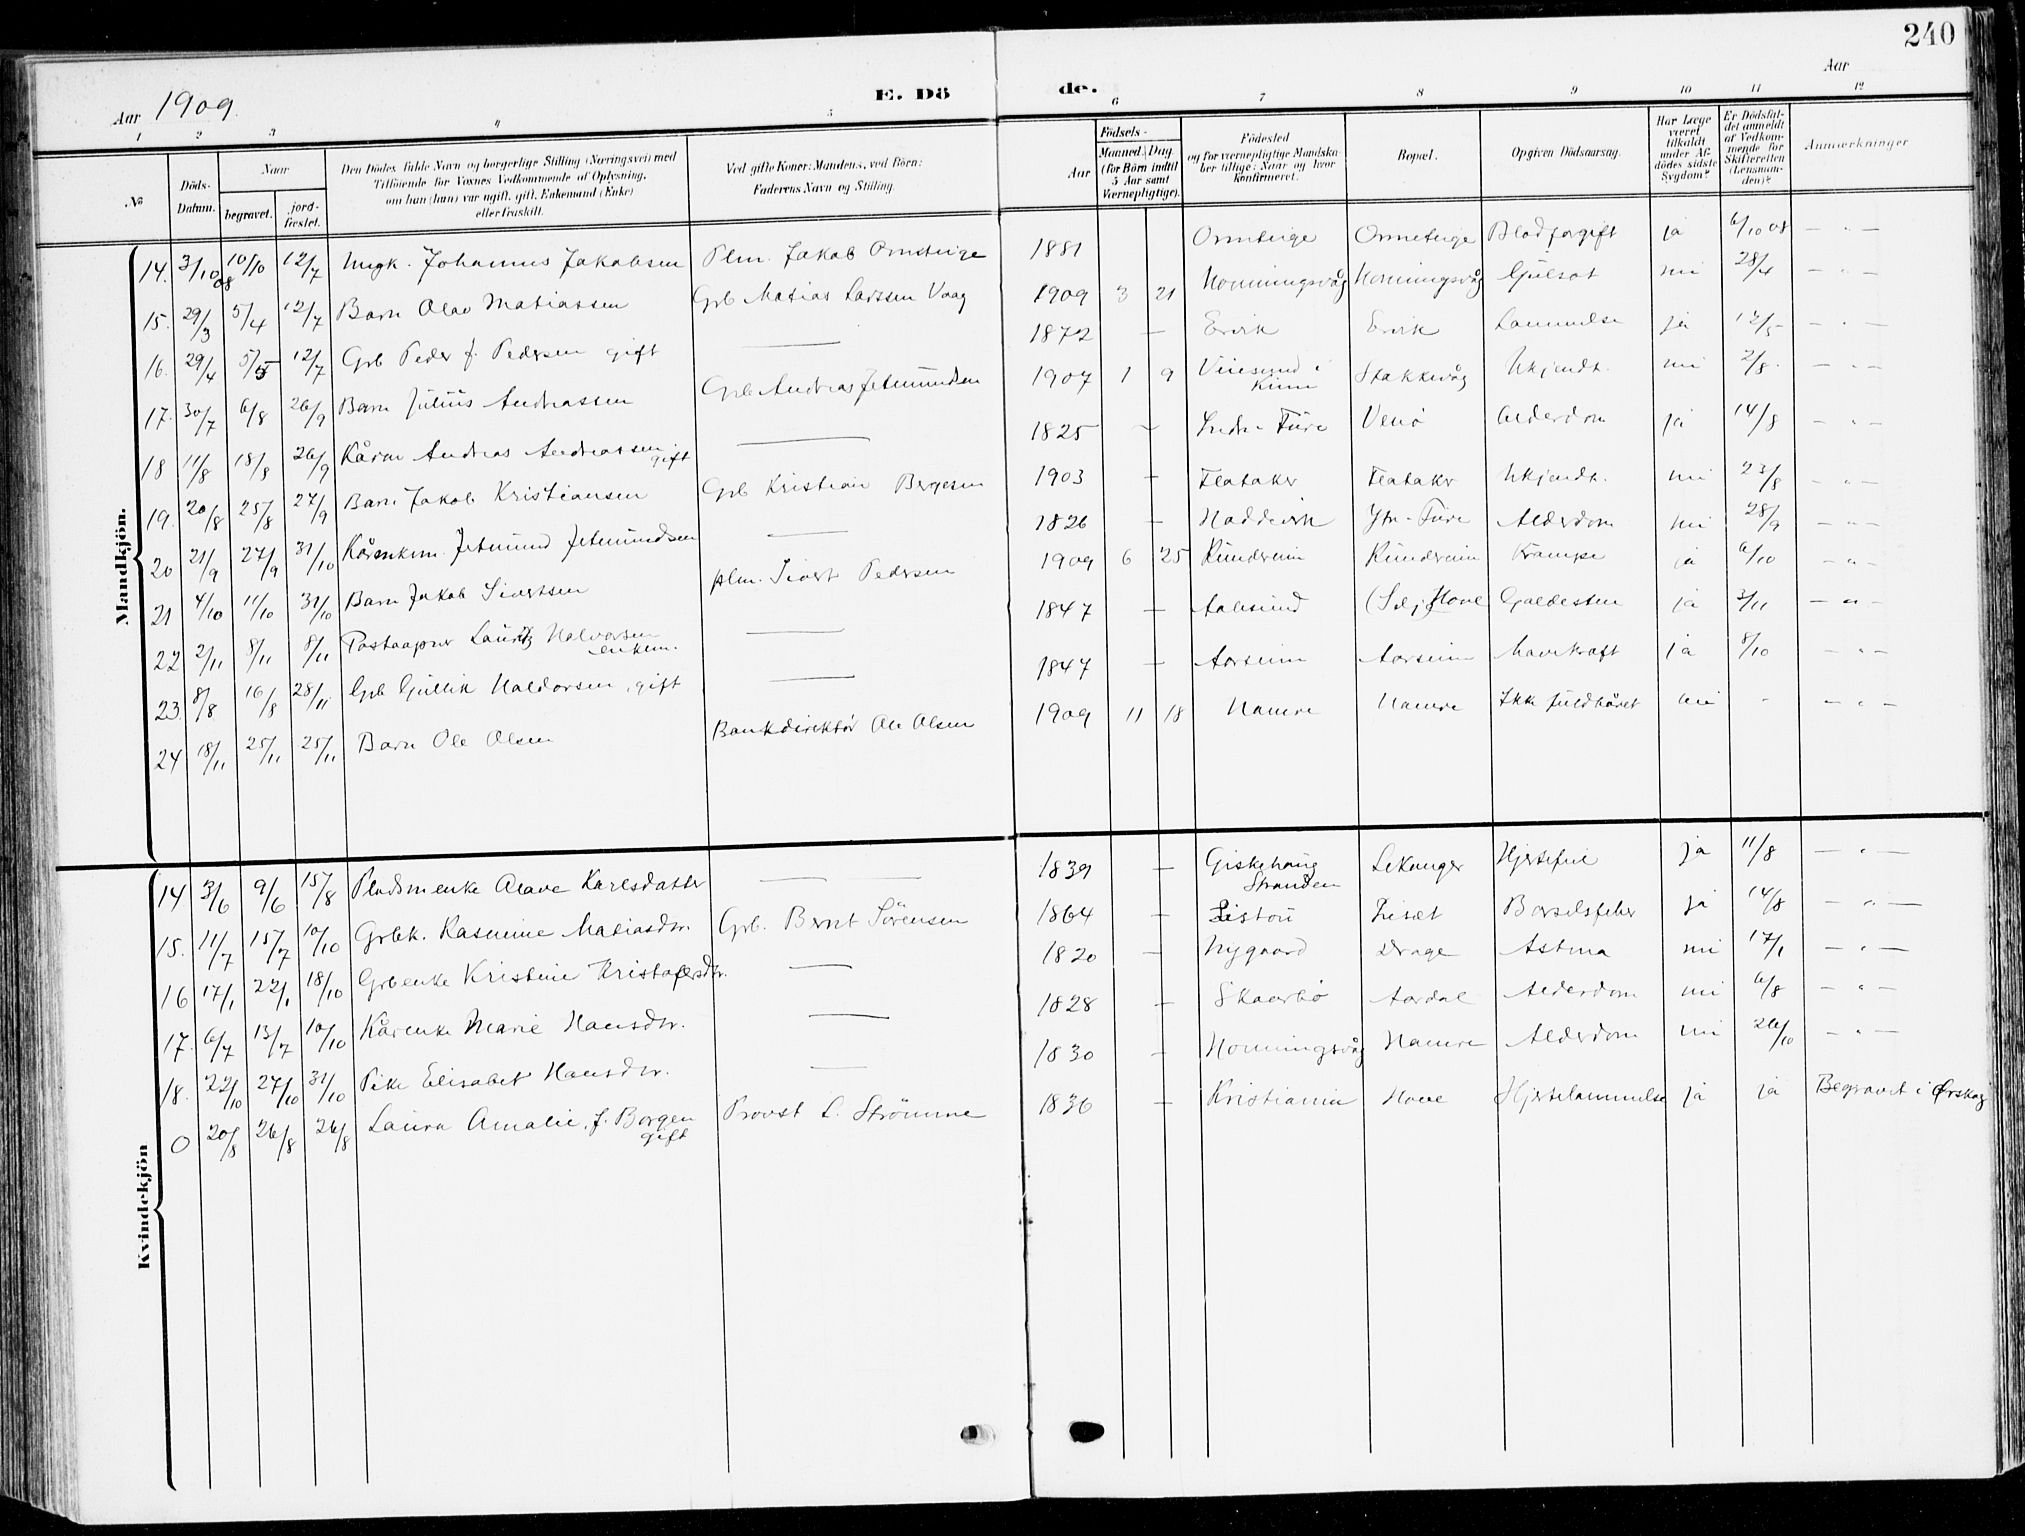 240
Aar 1909.
E. Dö
de.
Aar
1 2 3 4 5 6 7 8 9 10 11 12
№
Döds-Datum.
Naar
begravet.
jord-fæstet.
Den Dödes fulde Navn og borgerlige Stilling (Næringsvei) med
Tilföiende for Voxnes Vedkommende af Oplysning,
om han (hun) var ugift, gift, Enkemand (Enke)
eller fraskilt.
Ved gifte Koner: Mandens, ved Börn:
Faderens Navn og Stilling.
Födsels-
Aar
Maaned. Dag
(for Börn indtil
5 Aar samt
Værnepligtige).
Födested
og for værnepligtige Mandska-
ber tillige: Naar og hvor
konfirmeret.
Bopæl.
Opgiven Dödsaarsag.
Har Læge
været
tilkaldt
under Af-
dödes sidste
Sygdom?
Er Dödsfal-
det anmeldt
af Vedkom-
mende for
Skifteretten
(Lensman-
den)?
Anmærkninger
Mandkjön.
14. 3/10 08 10/10 12/7 Ungk. Johannes Jakobsen Plm. Jakob Ormsteige 1881 Ormteige Ormeteige Blodforgift ja 6/10 08 — " —
15. 29/3 5/4 12/7 Barn Olav Matiassen Grb Matias Larssen Vaag 1909 3 21 Honningsvåg Honningsvåg Gulsot nei 28/4 — " —
16. 29/4 5/5 12/7 Grb Peder J. Pedersen gift — 1872 — Ervik Ervik Lammelse ja 12/5 — " —
17. 30/7 6/8 26/9 Barn Julius Andreassen Grb Andreas Jetmundsen 1907 1 9 Vinesund i Kinn Stakkevåg Ukjendt. nei 2/8. — " —
18 11/8 18/8 26/9 Kårm Andreas Andreassen gift — 1825 — Indre-Fure Venö Alderdom ja 14/8 — " —
19. 20/8 25/8 27/9 Barn Jakob Kristiansen Grb Kristian Bergesen 1903 — Flataker Flataker Ukjendt. nei 23/8 — " —
20 21/9 27/9 31/10 Kårenkem. Jetmund Jetmundsen — 1826 — Haddevik Ytre-Fure Alderdom nei 28/9 — " —
21 4/10 11/10 31/10 Barn Jakob Sivertsen plm. Sivert Pedersen 1909 6 25 Rundereim Rundereim Krampe ja 6/10 — " —
22 2/11 8/11 8/11 Postaapner Lauritz Halvorsen enkem. — 1847 — Aalesund (Selje) Hove Galdesten ja 3/11 — " —
23. 8/8 16/8 28/11 Grb Gullik Haldorsen, gift — 1847 — Aarseim Aarseim Mavekræft ja 8/10 — " —
24 18/11 25/11 25/11 Barn Ole Olsen Bankdirektör Ole Olsen 1909 11 18 Hamre Hamre Ikke fuldbåret nei - — " —
Kvindekjön
14 3/6 9/6 15/8 Pladsmenke Olave Karlsdatter — — 1839 — Giskehaug Stranden Lekanger Hjertefeil ja 11/8 — " —
15. 11/7 15/7 10/10 Grbk. Rasmine Matiasdtr. Grb. Bernt Sörensen 1864 — Listou Liset Barselsfeber ja 14/8 — " —
16 17/1 22/1 18/10 Grbenke Kristine Kristofersdtr. — 1820 — Nygaard Drage Astma nei 17/1 — " —
17. 6/7 13/7 10/10 Kårenke Marie Hansdtr. — 1828 — Skaarbö Aardal Alderdom nei 6/8 — " —
18. 22/10 27/10 31/10 Pike Elisabet Hansdtr. — 1830 — Honningsvåg Hamre Alderdom nei 26/10 — " —
0 20/8 26/8 26/8 Laura Amalie, f. Borgen gift Provst L. Strömme 1836 — Kristiania Hove Hjertelammelse ja ja Begravet i Ørskog